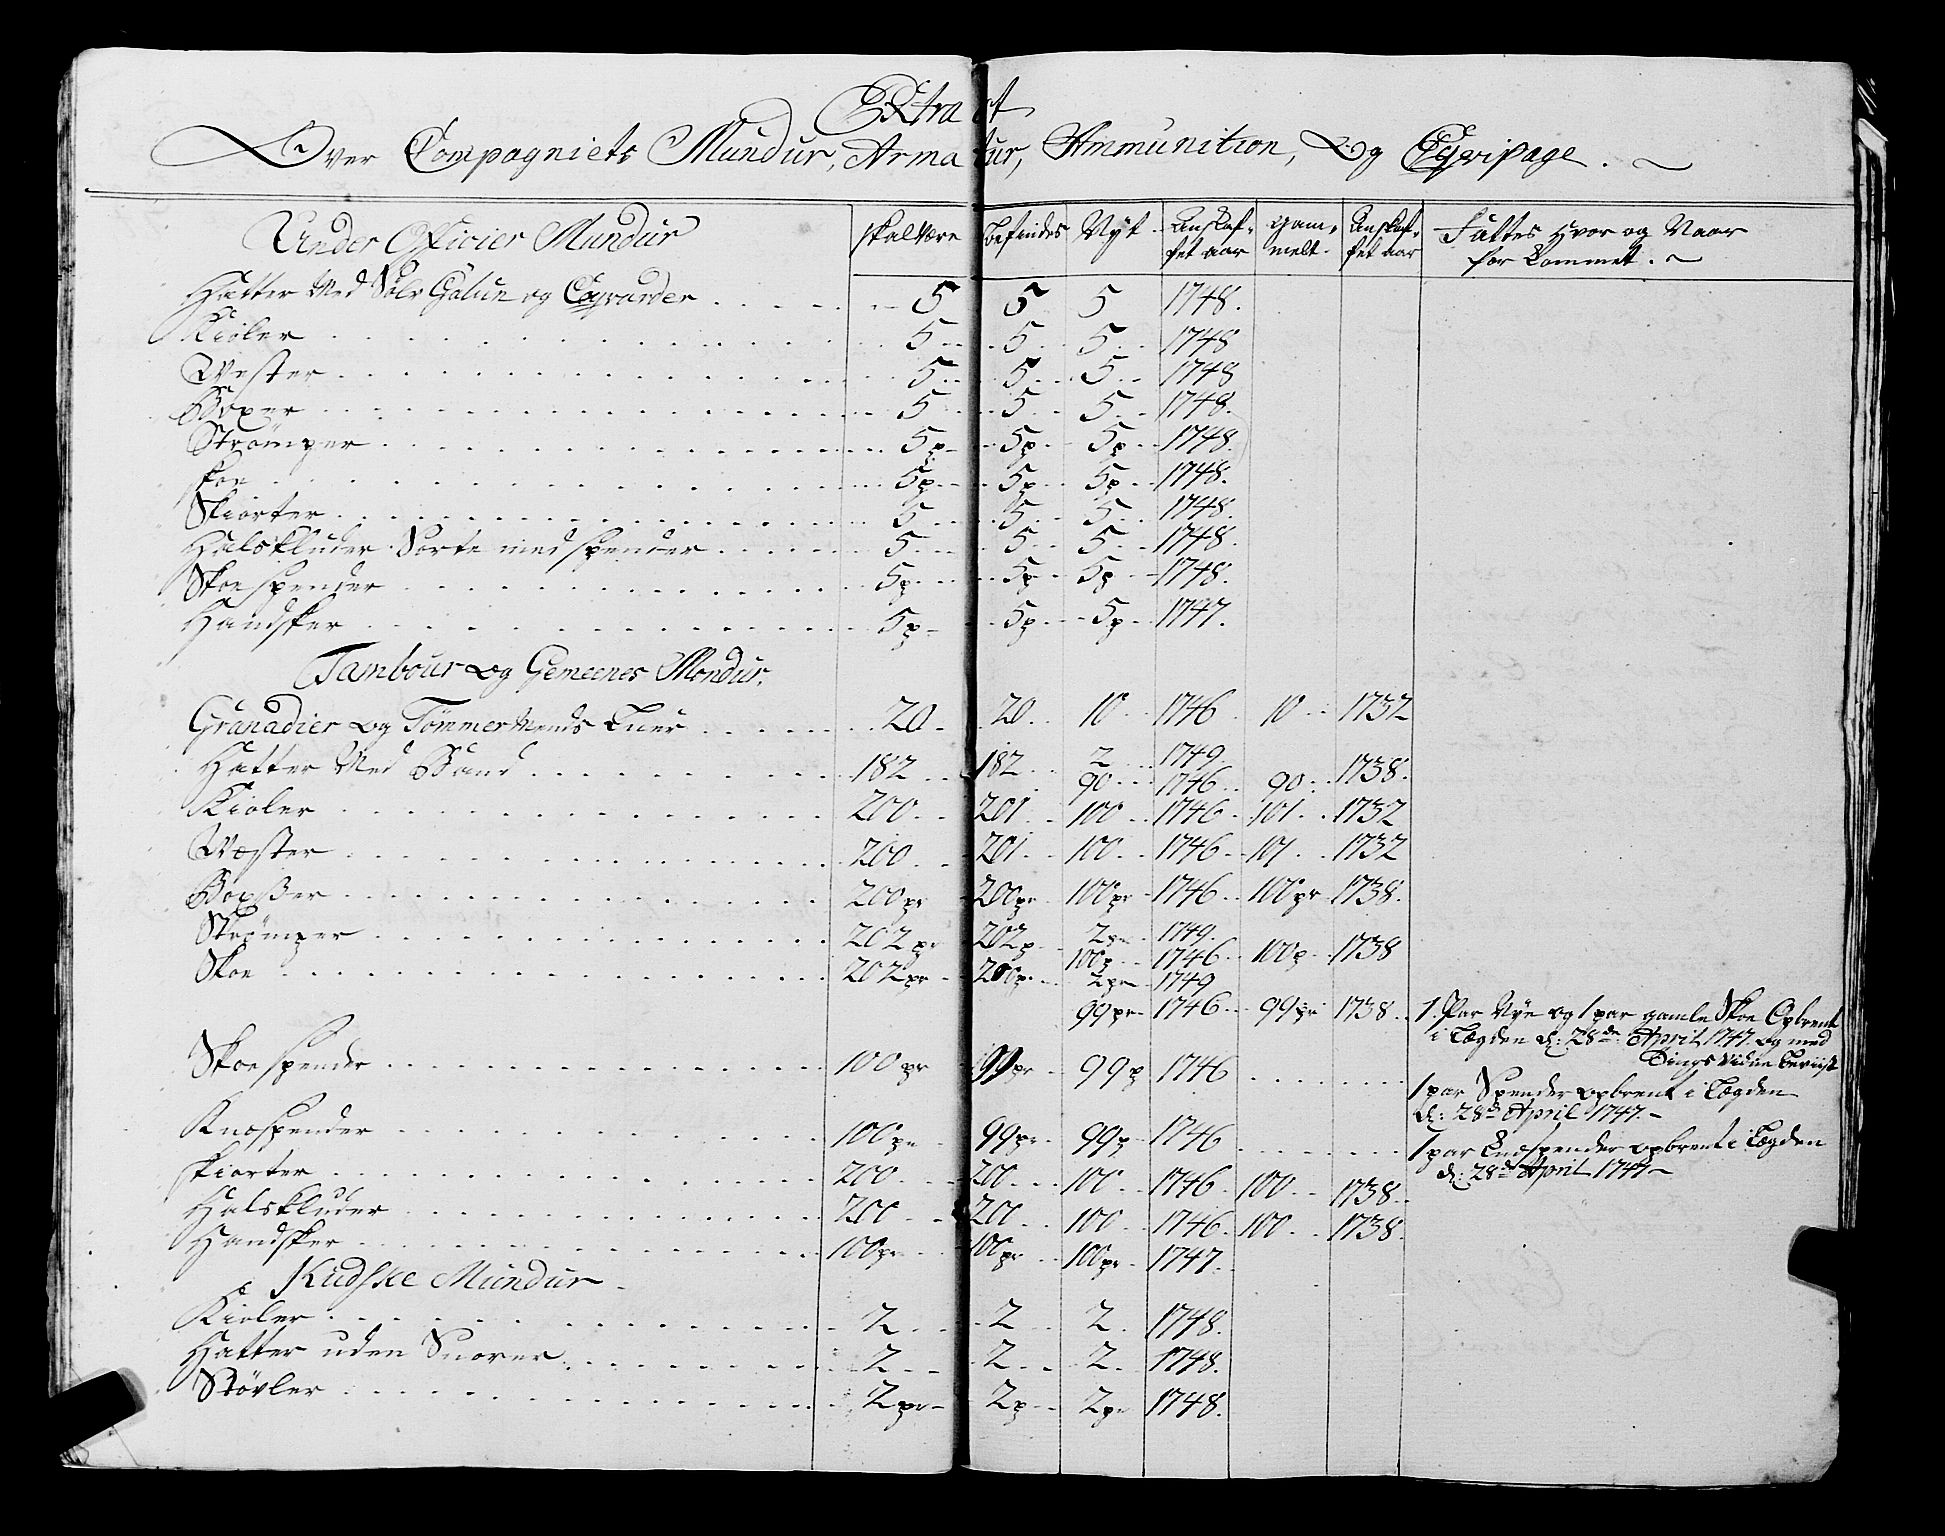 Extract
Over Compagniets Mundur, Armatur, Ammunition, Og Eqvipage.
Under Officier Mundur skal være befindes Nyt Anskaf- gam- Anskaf- Fattes hvor og Naar
fet aar melt. fet aar for Kommet.
Hatter Med Sølv Galun og Coqvarder 5 5 5 1748.
Kioler 5 5 5 1748
Vester 5 5 5 1748
Boxer 5 5 5 1748.
Strømper 5p 5p 5p 1748.
skoe 5p 5p 5p 1748.
Skiorter 5 5 5 1748.
Halskluder Sorte med spender 5 5 5 1748.
Skoespender 5p 5p 5p 1748.
Handsker 5p 5p 5p 1747.
Tambour og Gemeenes Mondur.
Granadier og Tømmermends Luer 20 20 10 1746 10 1732
2 1749
Hatter Med Baand 182 182 90 1746 90 1738.
Kioler 200 201 100 1746 101 1732
Væster 200 201 100 1746 101 1732
Boxser 200pr 200pr 100pr 1746 100pr 1738.
2pr 1749.
Strømper 202pr 202p 100p 1746 100p 1738
Skoe 202pr 200p 2pr 1749
99pr 1746 99pr 1738 1. Par Nye og 1 par gamle Skoe Opbrent
i Lægden d: 28de April 1747. og med
Tings Vidne beviist
Skoespender 100pr 99pr 99p 1746
1 par Spender opbrent i Lægden
d: 28de April 1747
Knæspender 100pr 99pr 99p 1746
1 par Knæspender opbrent i Lægden
d: 28de April 1747
skiorter 200 200 100 1746 100 1738
Halskluder 200 200 100 1746 100 1738.
Handsker 100pr 100pr 100pr 1747.
Kudske Mundur
Kioler 2 2 2 1748.
Hatter uden Snorer 2 2 2 1748.
Støvler 2pr 2p 2p 1748.